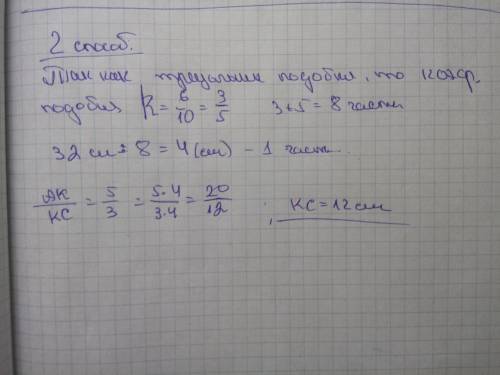 2 способ.
Так как треугольник подобны, то коэф.
подобия k = 6/10 = 3/5 3+5 = 8 части
32 см : 8 = 4 (см) - 1 часть.
AK/KC = 5/3 = 5·4/3·4 = 20/12 ; KC = 12 см